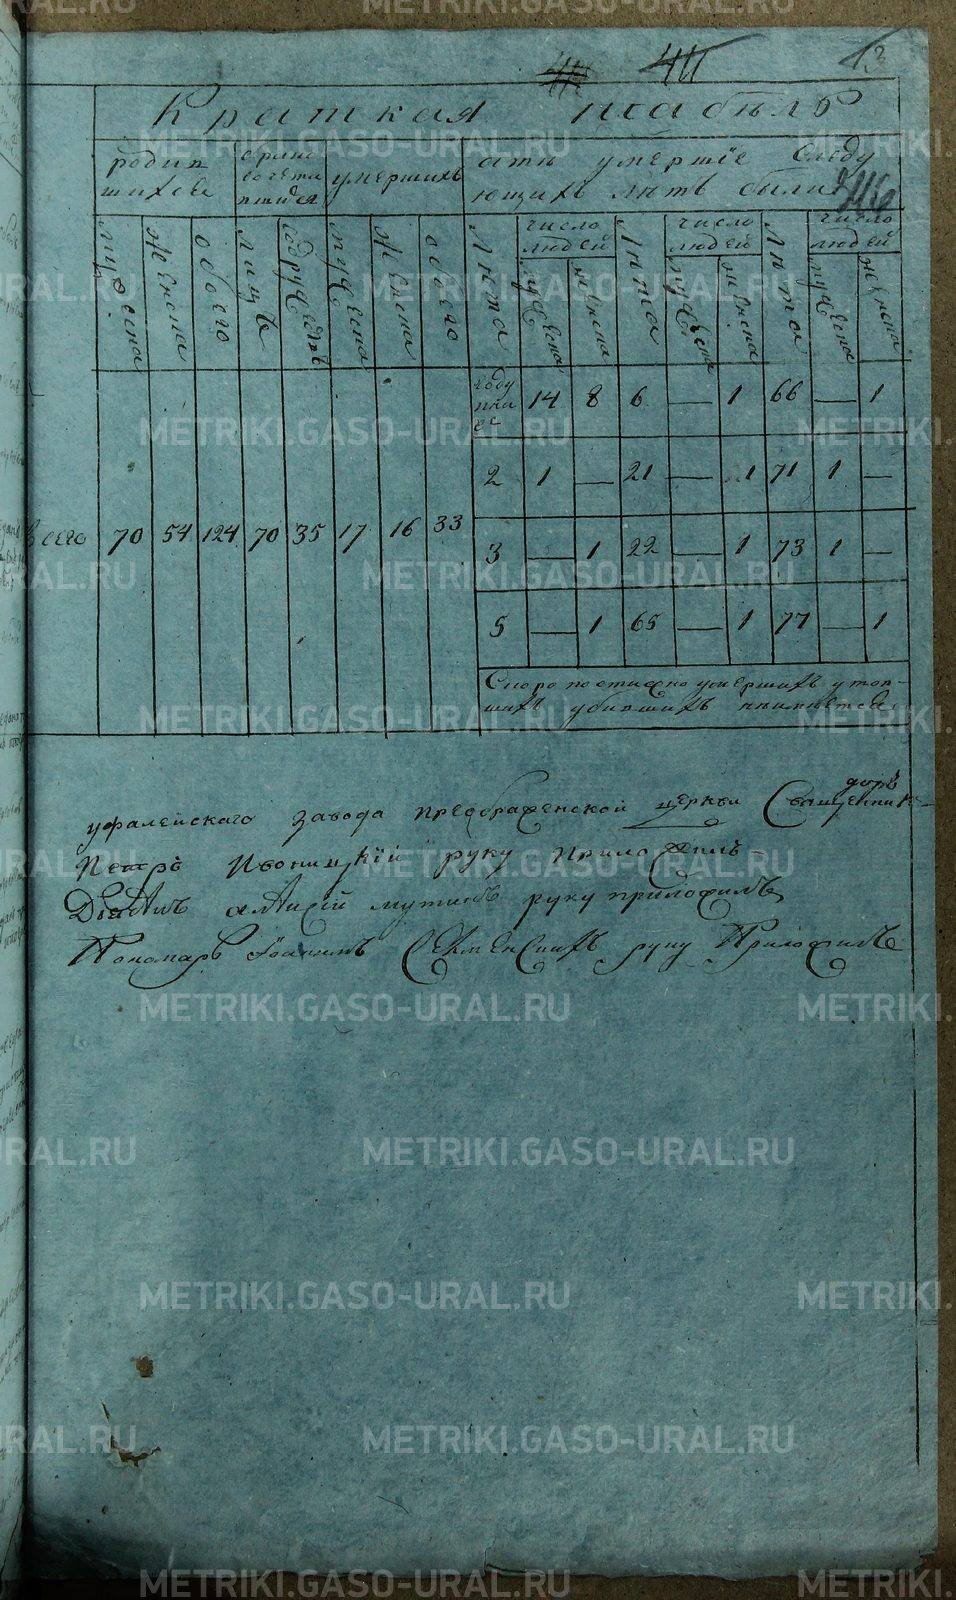 411 13
Краткая табель
родив бракс умершихъ отъ умершіе следу
шихся сочета ющихъ лѣтъ были 416
вшихся
мужеска женска обоего лицъ содружедъ мужеска женска обоего Лѣта число людей Лѣта число людей Лѣта число людей
мужеска женска мужеска женска мужеска женска
году 14 8 6 — 1 66 — 1
2 1 — 21 — 1 71 1 —
всего 70 54 124 70 35 17 16 33
3 — 1 22 — 1 73 1 —
5 — 1 65 — 1 77 — 1
Скоропостижно умершихъ утоп-
шихъ убившихъ неимѣется
уфалейскаго завода преображенской церкви Священникъ
Петръ Ивоницкій руку приложилъ
Дьячекъ алексій мутинъ руку приложилъ
Пономарь Іоакимъ руку Приложилъ
METRIKI.GASO-URAL.RU